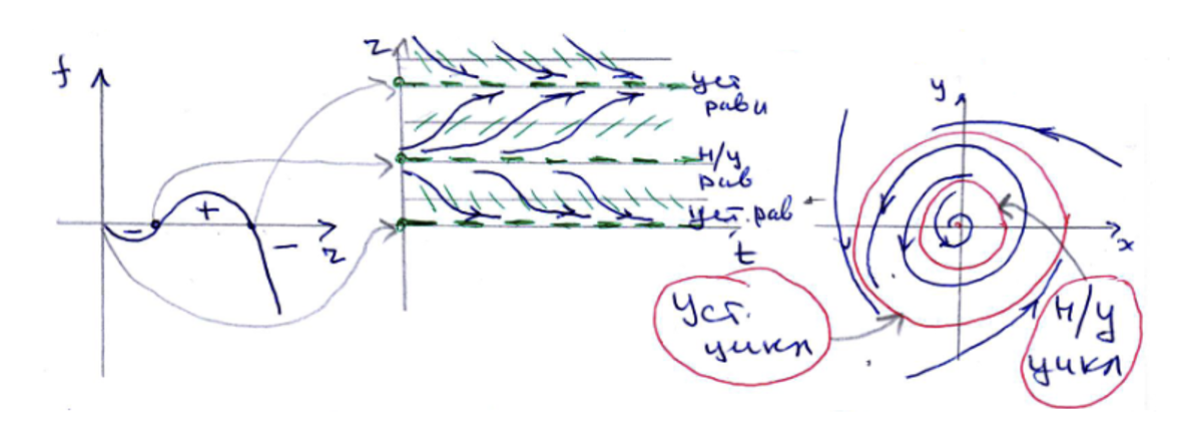 f
−
+
−
z
z
уст
равн
н/у
рав
уст. рав
t
y
x
Уст.
цикл
Н/У
цикл